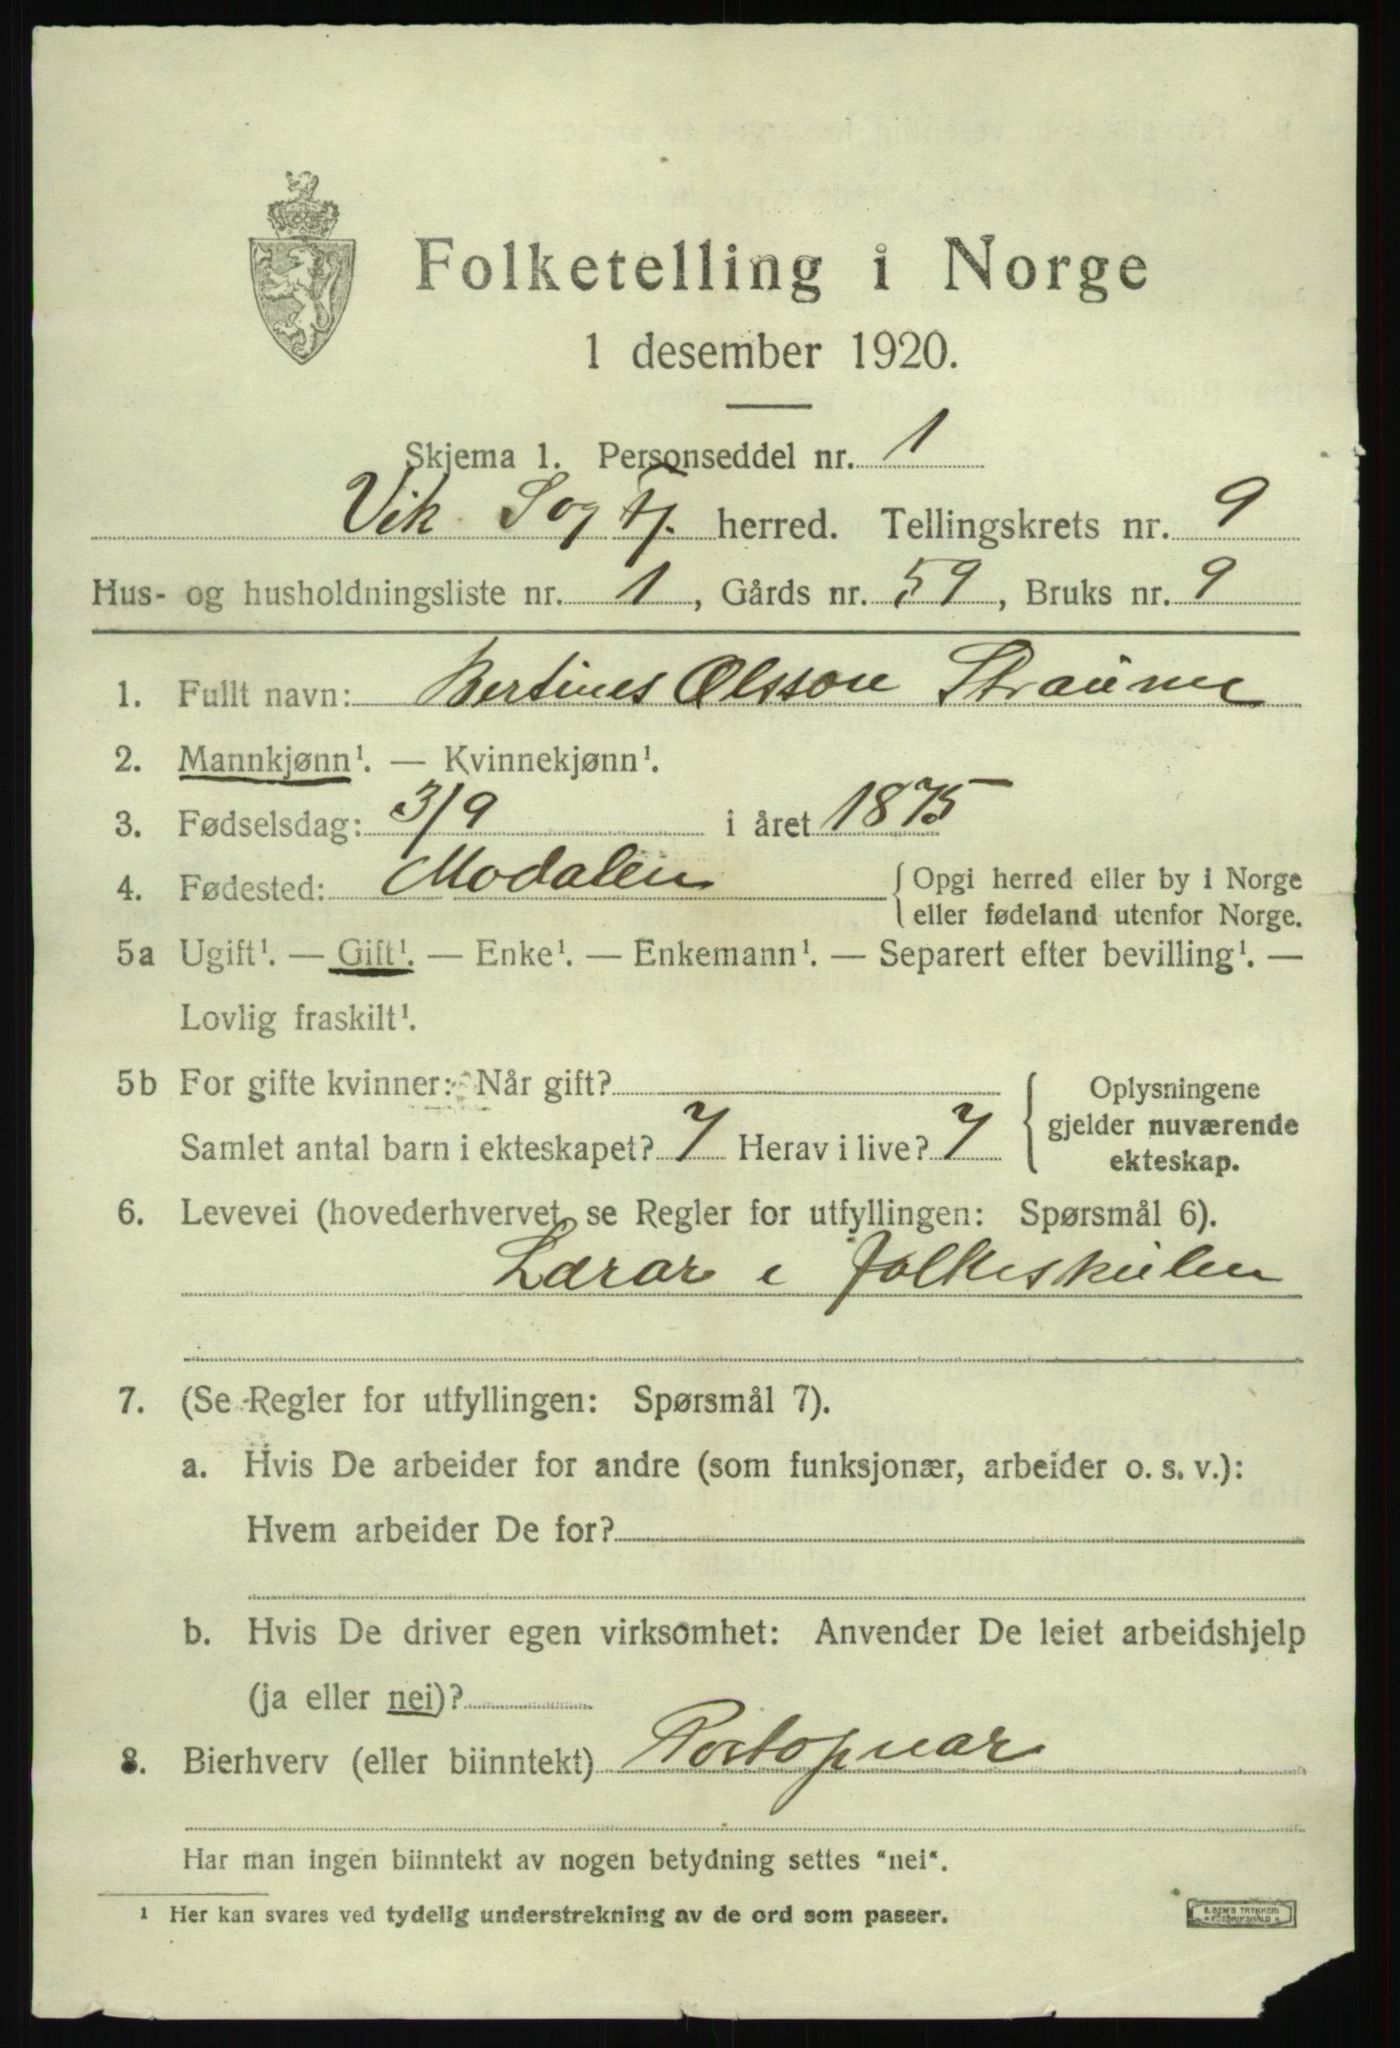 Folketelling i Norge
1 desember 1920.
Skjema 1. Personseddel nr. 1
Vik Sogn Fj. herred. Tellingskrets nr. 9
Hus- og husholdningsliste nr. 1, Gårds nr. 59, Bruks nr. 9
1. Fullt navn: Bertines Olsson Straume
2. Mannkjønn¹. — Kvinnekjønn¹.
3. Fødselsdag: 3/9 i året 1875
4. Fødested: Modalen { Opgi herred eller by i Norge
eller fødeland utenfor Norge.
5a Ugift¹. — Gift¹. — Enke¹. — Enkemann¹. — Separert efter bevilling¹. —
Lovlig fraskilt¹.
5b For gifte kvinner: Når gift?
Samlet antal barn i ekteskapet? 7 Herav i live? 7
Oplysningene
gjelder nuværende
ekteskap.
6. Levevei (hovederhvervet, se Regler for utfyllingen: Spørsmål 6).
Lærar i folkeskulen
7. (Se Regler for utfyllingen: Spørsmål 7).
a. Hvis De arbeider for andre (som funksjonær, arbeider o. s. v.):
Hvem arbeider De for?
b. Hvis De driver egen virksomhet: Anvender De leiet arbeidshjelp
(ja eller nei)?
8. Bierhverv (eller biinntekt) Postopnar
Har man ingen biinntekt av nogen betydning settes "nei".
¹ Her kan svares ved tydelig understrekning av de ord som passer.